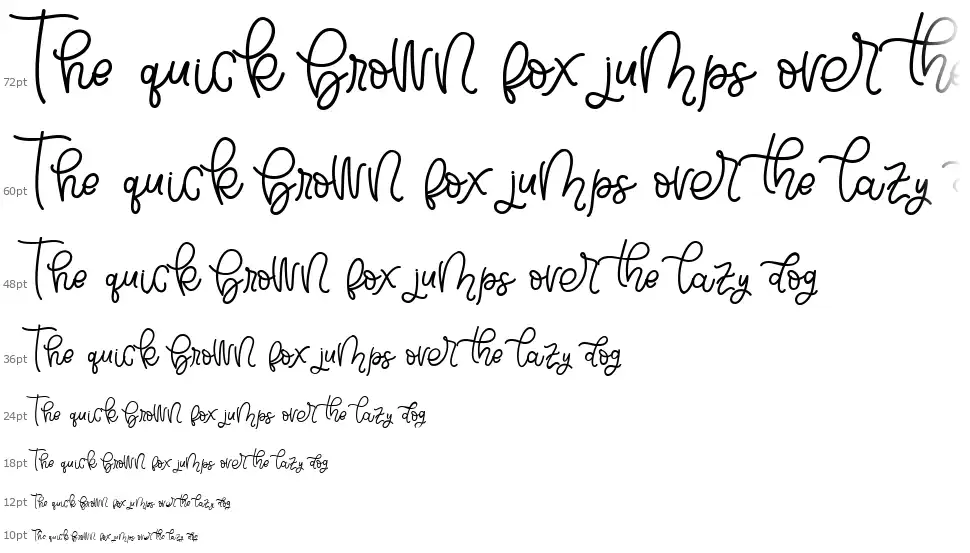 72pt The quick brown fox jumps over the
60pt The quick brown fox jumps over the lazy
48pt The quick brown fox jumps over the lazy dog
36pt The quick brown fox jumps over the lazy dog
24pt The quick brown fox jumps over the lazy dog
18pt The quick brown fox jumps over the lazy dog
12pt The quick brown fox jumps over the lazy dog
10pt The quick brown fox jumps over the lazy dog